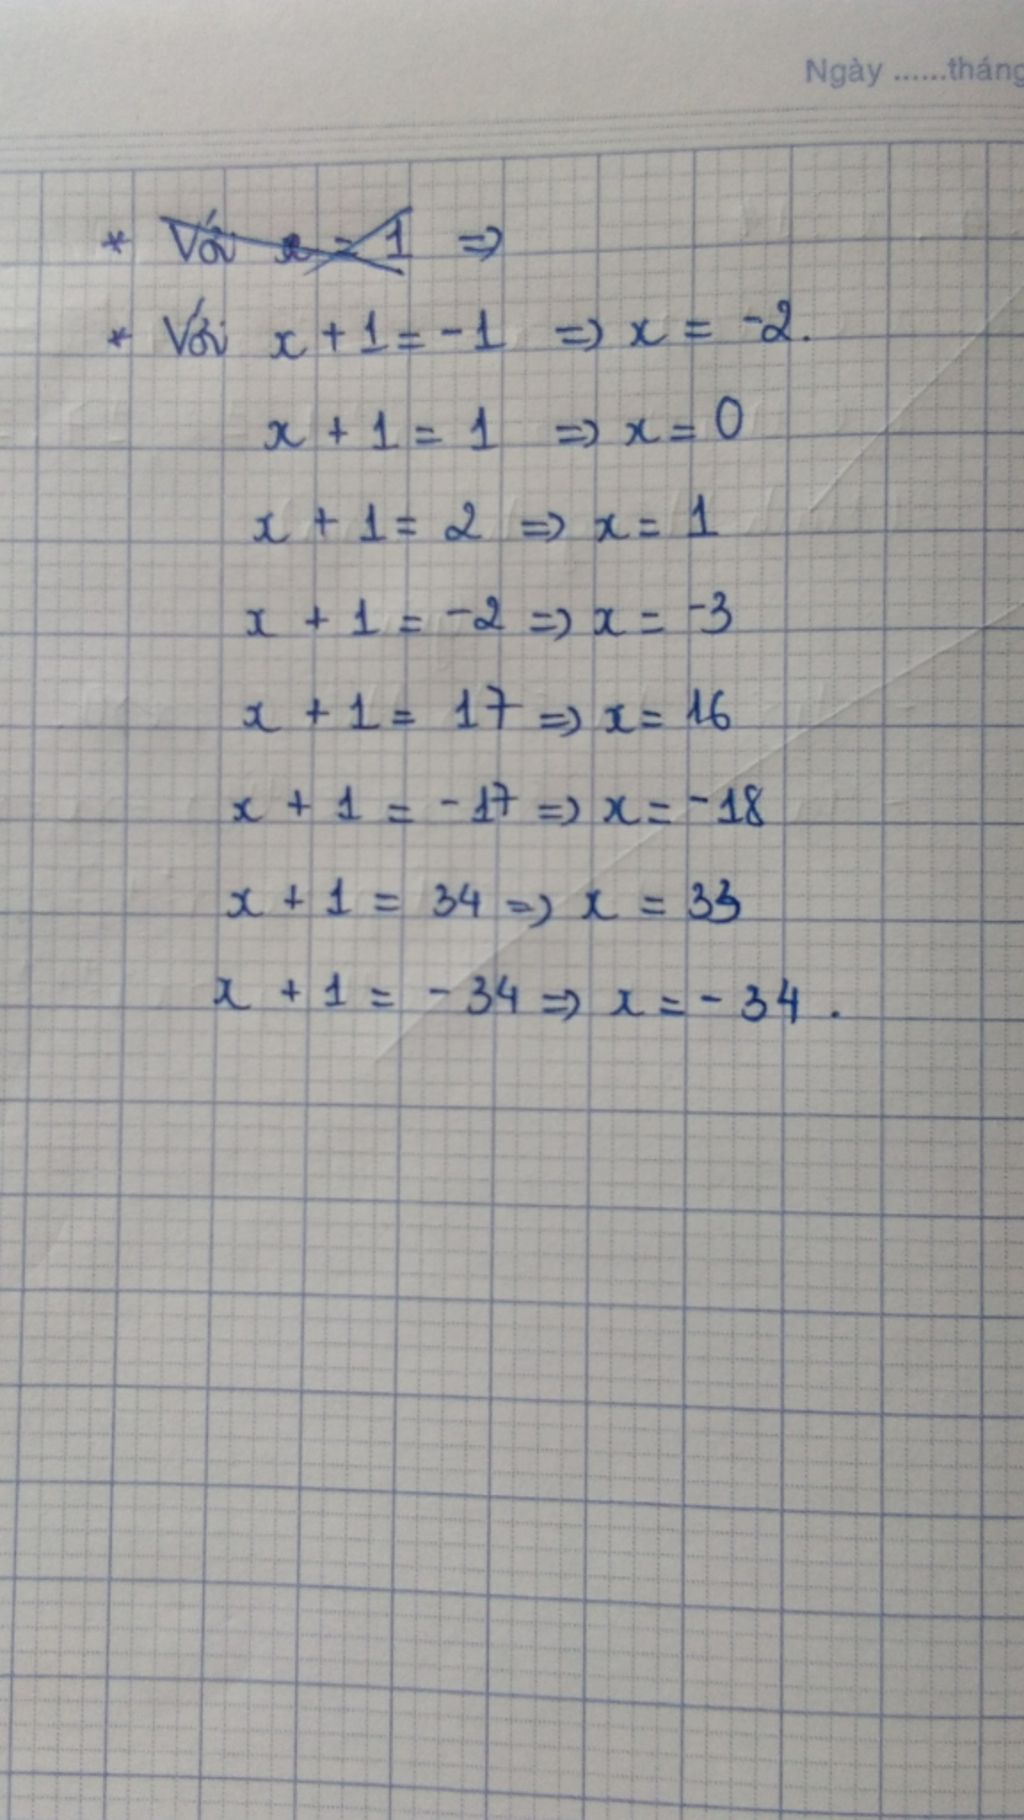 Ngày ......tháng
* Với x = 1 =>
* Với x + 1 = -1 => x = -2.
x + 1 = 1 => x = 0
x + 1 = 2 => x = 1
x + 1 = -2 => x = -3
x + 1 = 17 => x = 16
x + 1 = -17 => x = -18
x + 1 = 34 => x = 33
x + 1 = -34 => x = -34.